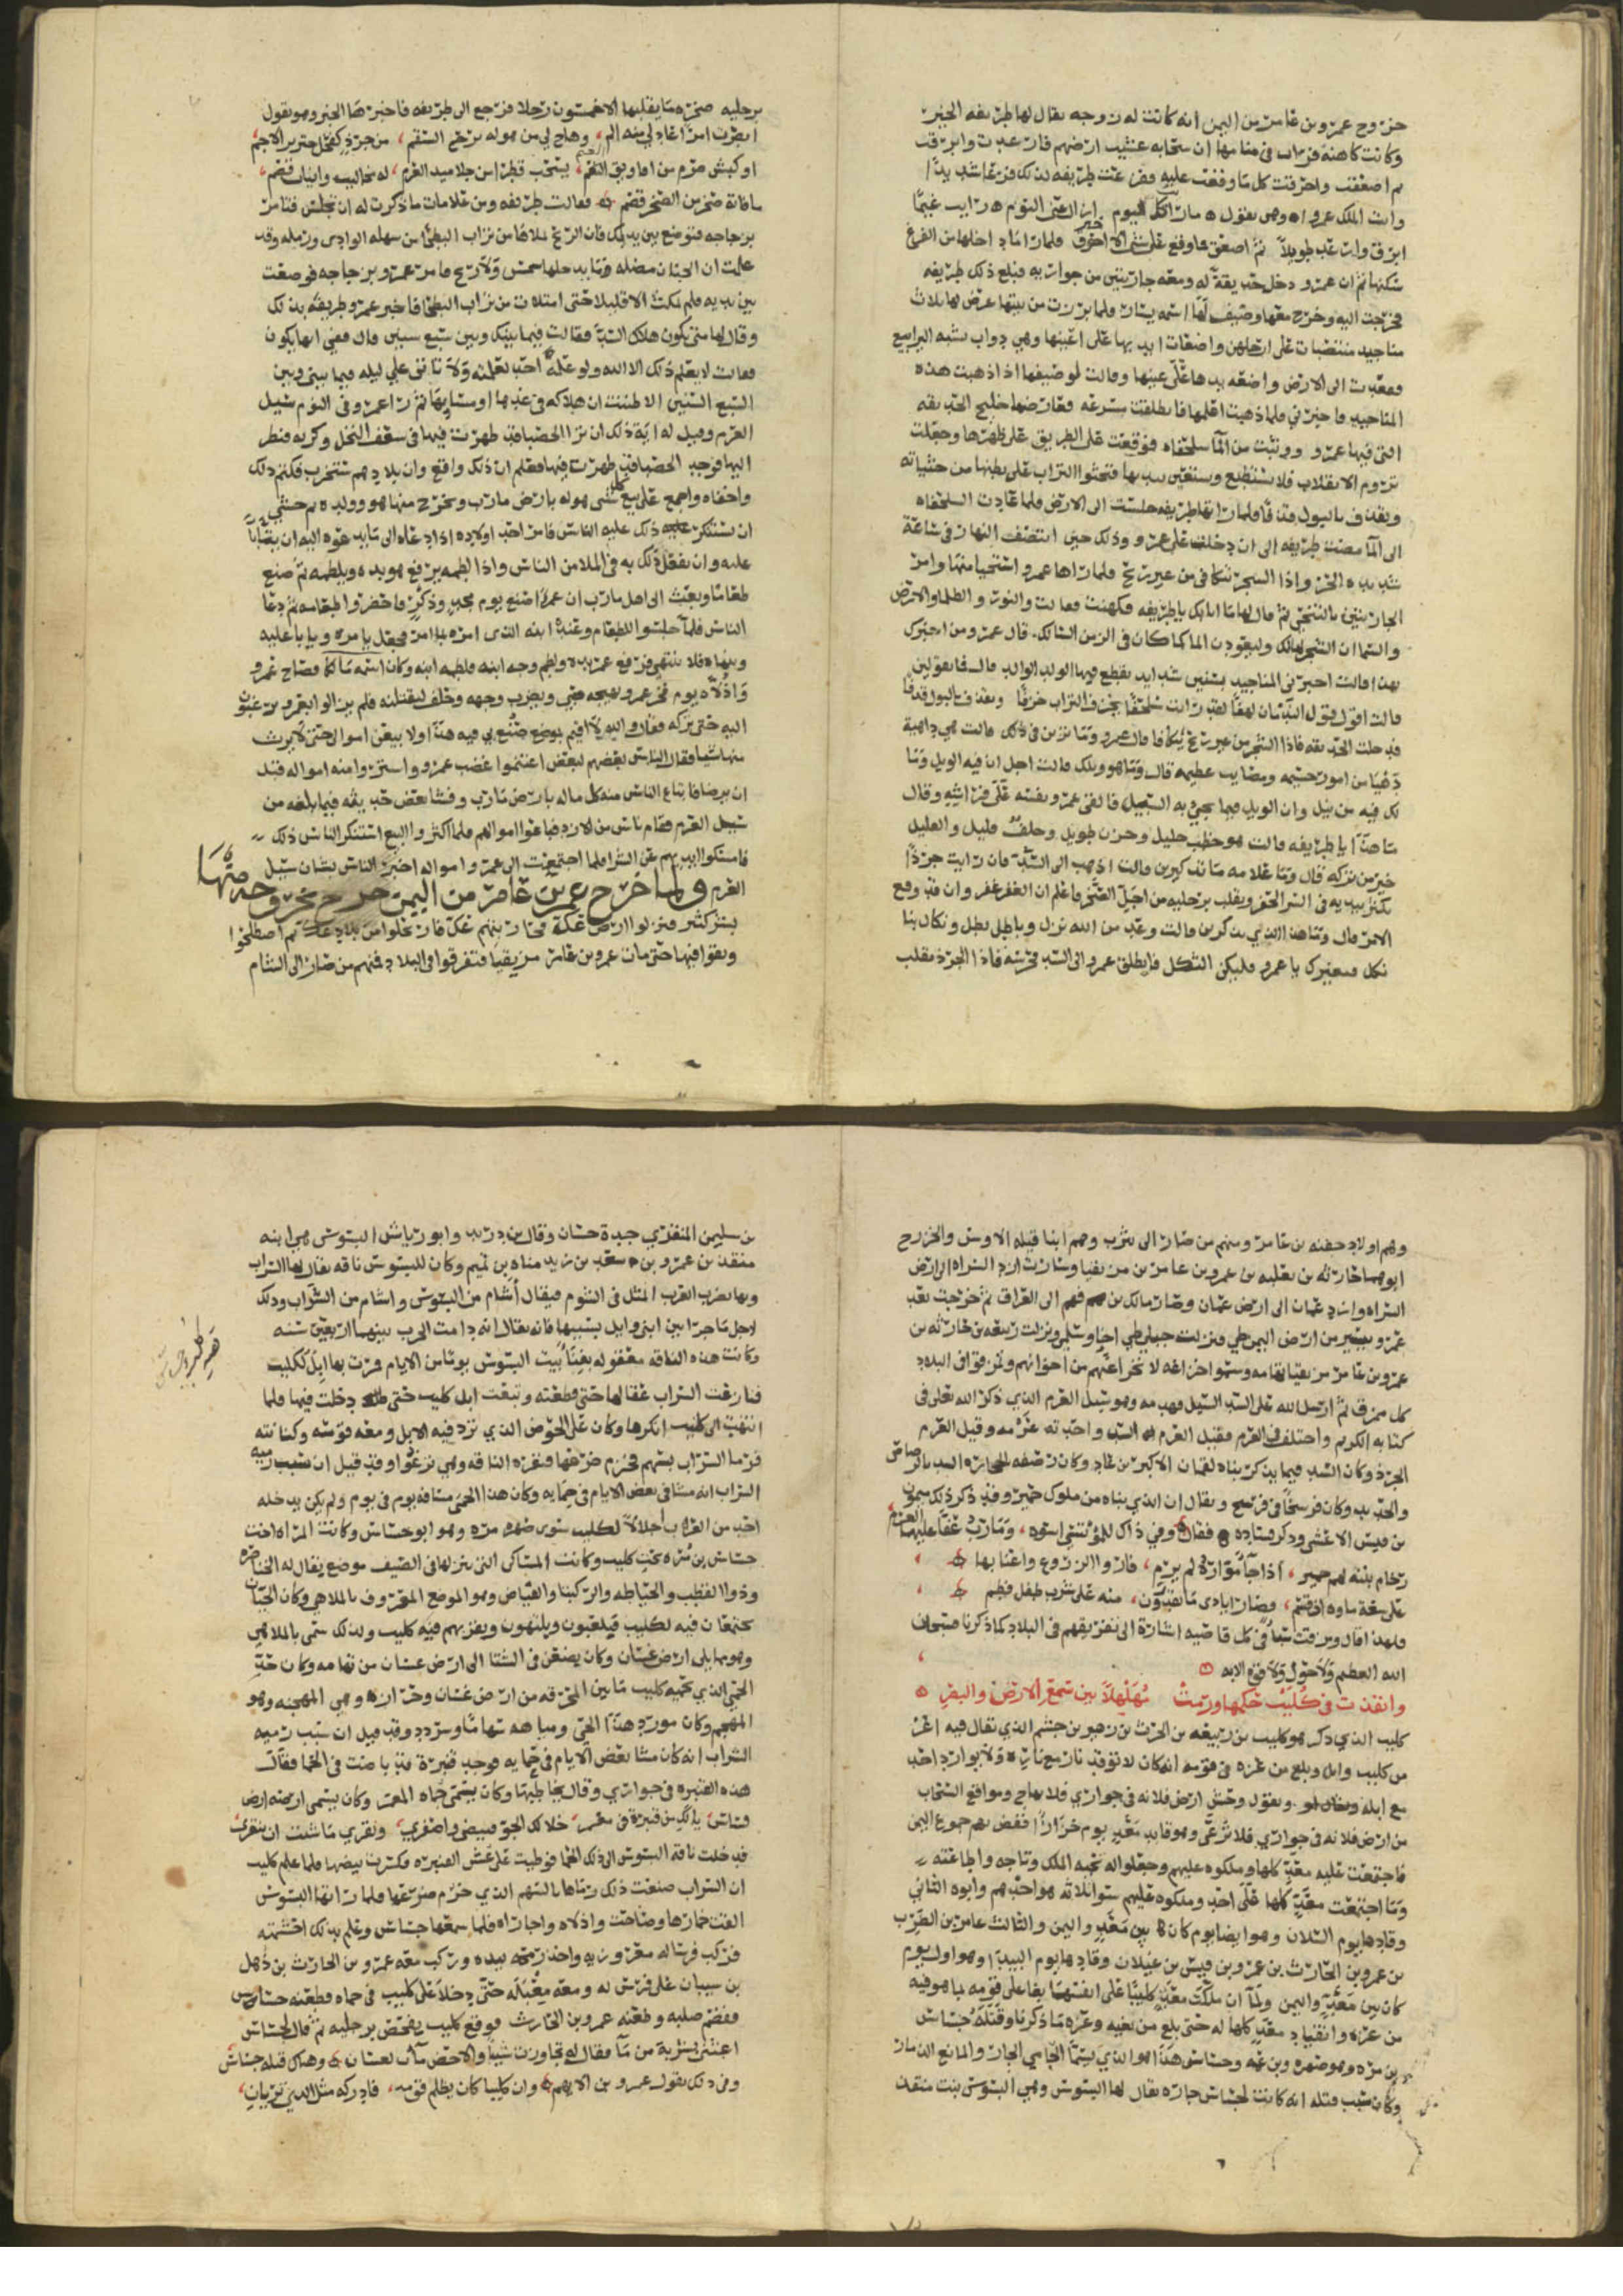 خروج عمرو بن عامر من اليمن انه كانت له زوجه يقال لها طريفه الخير
وكانت كاهنه فرات في منامها ان سحابه غشيت ارضهم فارعدت وابرقت
ثم اصعقت واحرقت كل ما وقعت عليه ففزعت طريفه لذلك فزعا شديدا
واتت الملك عمرا وهي تقول ما رايت اليوم ازال عني النوم رايت غيما
ابرق وارعد طويلا ثم اصعق فما وقع على شي الا احترق فلما راى ما داخلها من الفزع
سكنها ثم ان عمرو دخل حديقة له ومعه جاريتين من جواريه فبلغ ذلك طريفه
فخرجت اليه وخرج معها وصيف لها اسمه سنان فلما برزت من بيتها عرض لها ثلاث
مناجيد منتصبات على ارجلهن واضعات ايديها على اعينها وهي دواب تشبه اليرابيع
فقعدت الى الارض واضعه يدها على عينها وقالت لوصيفها اذا ذهبت هذه
المناجيد فاخبرني فلما ذهبت اعلمها فانطلقت مسرعه فعارضها خليج الحديقه
التي فيها عمرو ووثبت من الما سلحفاه فوقعت على الطريق على ظهرها وجعلت
تروم الانقلاب فلا تستطيع وتستعين بيديها فتحثوا التراب على بطنها من جنباته
وتقذف بالبول قذفا فلما راتها طريفه جلست الى الارض فلما عادت السلحفاه
الى الما مضت طريفه الى ان دخلت على عمرو وذلك حين انتصف النهار في ساعة
شديده الحر واذا الشجر تتكافى من غير ريح فلما راها عمرو استحيا منها وامر
الجاريتين بالتنحي ثم قال لها ما اتى بك يا طريفه فكهنت وقالت والنور والظلما والارض
والسما ان الشجر لهالك وليعودن الما كما كان في الزمن السالك قال عمرو ومن اخبرك
بهذا قالت اخبرتني المناجيد بسنين شدايد يقطع فيها الولد الوالد قال ما تقولين
قالت اقول قول الندمان لهفا لقد رايت سلحفا تجرف التراب جرفا وتقذف بالبول قذفا
فدخلت الحديقه فاذا الشجر من غير ريح يتكافا قال عمرو وما ترين في ذلك قالت هي داهية
دهيا من امور جسيمه ومصايب عظيمه قال وما هو ويلك قالت اجل ان فيه الويل وما
لك فيه من نيل وان الويل فيما يجي به السيل فالقى عمرو نفسه على فراشه وقال
ما هذا يا طريفه قالت هو خطب جليل وحزن طويل وخلف قليل والقليل
خير من تركه قال وما علامه ما تذكرين قالت اذهب الى السد فان رايت جرذا
يكثر بيديه في السد الحفر ويقلب برجليه من اجل الصخر فاعلم ان الغفر غفر وان قد وقع
الامر قال وما هذا الذي تذكرين قالت وعد من الله نزل وباطل بطل ونكال بنا
نكل فبغيرك يا عمرو فليكن الثكل فانطلق عمرو الى السد فحرسه فاذا الجرذ يقلب
برجليه صخره ما يقلبها الا خمسون رجلا فرجع الى طريفه فاخبرها الخبر وهو يقول
ابصرت امرا عادلي منه الم، وهاج لي من هوله برح السقم، من جرذ كفحل خنزير الاجم،
او كبش صرم من افاريق الغنم، يسحب قطرا من جلاميد العرم، له مخاليب وانياب قضم،
ما فاته صخر من الصخر قضم فقالت طريفه ومن علامات ما ذكرت له ان تجلس فتامر
بزجاجه فتوضع بين يديك فان الريح تملاها من تراب البطحا من سهله الوادي ورمله وقد
علمت ان الجنان مضله وما يدخلها شمس ولا ريح فامر عمرو بزجاجه فوضعت
بين يديه فلم تمكث الا قليلا حتى امتلات من تراب البطحا فاخبر عمرو طريفه بذلك
وقال لها متى يكون هلاك السد فقالت فيما بينك وبين سبع سنين قال ففي ايها يكون
فقالت لا يعلم ذلك الا الله ولو علمه احد لعلمته ولا تاتي علي ليله فيما بيني وبين
السبع السنين الا ظننت ان هلاكه في غدها او مسايها ثم راى عمرو في النوم سيل
العرم وقيل له اية ذلك ان ترى الحصبا قد ظهرت في سعف النخل وكربه فنظر
اليها فوجد الحصبا قد ظهرت فيها فعلم ان ذلك واقع وان بلادهم ستخرب فكتم ذلك
واخفاه واجمع على بيع كل شي هو له بارض مارب ويخرج منها هو وولده ثم خشي
ان تستنكر عليه ذلك عليه الناس فامر احد اولاده اذا دعاه الى ما يدعوه اليه ان يتابا
عليه وان يفعل ذلك به في الملا من الناس واذا لطمه يرفع هو يده ويلطمه ثم صنع
طعاما وبعث الى اهل مارب ان عمرا صنع يوم مجد وذكر فاحضروا طعامه ثم دعا
الناس فلما جلسوا للطعام وعنده ابنه الذي امره بما امر فجعل يامره ويابا عليه
وينهاه فلا ينتهي فرفع عمرو يده ولطم وجه ابنه فلطمه ابنه وكان اسمه مالكا فصاح عمرو
واذلاه يوم فخر عمرو يهيجه صبي ويضرب وجهه وحلف ليقتلنه فلم يزالوا بعمرو يرغبون
اليه حتى تركه فقال والله لا اقيم بموضع صنع بي فيه هذا ولا بيعن اموالي حتى لا يرث
منها شيا فقال الناس بعضهم لبعض اغتنموا غضب عمرو واشتروا منه امواله قبل
ان يرضا فابتاع الناس منه كل ماله بارض مارب وفشا بعض حديثه فيما بلغه من
سيل العرم فقام ناس من الازد فباعوا اموالهم فلما اكثروا البيع استنكر الناس ذلك
فامسكوا ايديهم عن الشرا فلما اجتمعت الى عمرو امواله اخبر الناس بشان سيل
العرم ولما خرج عمرو بن عامر من اليمن خرج بخروجه منها
بشر كثير فنزلوا ارض عك فحاربتهم عك فارتحلوا من بلاد عك ثم اصطلحوا
وبقوا فيها حتى مات عمرو بن عامر مزيقيا فتفرقوا في البلاد فمنهم من صار الى الشام
وهم اولاد جفنه بن عامر ومنهم من صار الى يثرب وهم ابنا قيله الاوس والخزرج
ابوهما حارثه بن ثعلبه بن عمرو بن عامر بن مزيقيا وسارت ازد السراه الى ارض
السراه وازد عمان الى ارض عمان وصار مالك بن فهم الى العراق ثم خرجت بعد
عمرو بيسير من ارض اليمن طي فنزلت جبلي طي اجا وسلمى ونزلت ربيعه بن حارثه بن
عمرو بن عامر مزيقيا تهامه وسموا خزاعه لانخزاعهم من اخوانهم وتمزقوا في البلاد
كل ممزق ثم ارسل الله على السد السيل فهدمه وهو سيل العرم الذي ذكر الله تعالى في
كتابه الكريم واختلف في العرم فقيل العرم السد واحدته عرمه وقيل العرم
الجرذ وكان السد فيما يذكر بناه لقمان الاكبر بن عاد وكان رصفه لحجارة السد بالرصاص
والحديد وكان فرسخا في فرسخ ويقال ان الذي بناه من ملوك حمير وقد ذكر ذلك ميمون
بن قيس الاعشى فقال وفي ذاك للمؤتسي اسوه، ومارب عفا عليها العرم
رخام بنته لهم حمير، اذا جا مواره لم يرم، فاروا الزروع واعنابها
على سعة ماوه اذ قسم، فصاروا ايادي ما يقدرون، منه على شرب طفل فطم
فلهذا قال ومزقت سبا في كل قاصيه اشارة الى تفريقهم في البلاد كما ذكرنا فسبحان
الله العظيم ولا حول ولا قوة الا به
وانفذت في كليب حكمها ورمت مهلهلا بين سمع الارض والبصر
كليب الذي ذكر هو كليب بن ربيعه بن الحرث بن زهير بن جشم الذي يقال فيه اعز
من كليب وايل وبلغ من عزه في قومه انه كان لا توقد نار مع ناره ولا يوارد احد
مع ابله ويقول وحش ارض فلانه في جواري فلا يهاج ومواقع السحاب
من ارض فلانه في جواري فلا ترعى وهو قايد معد يوم خزازا ففض بهم جموع اليمن
فاجتمعت عليه معد كلها وملكوه عليهم وجعلوا له تحيه الملك وتاجه واطاعته
وما اجتمعت معد كلها على احد وملكوه عليهم سوا ثلاثه هو احدهم وابوه الثاني
وقادها يوم السلان وهو ايضا يوم كان بين معد واليمن والثالث عامر بن الظرب
بن عمرو بن الحارث بن عمرو بن قيس بن عيلان وقادها يوم البيدا وهو اول يوم
كان بين معد واليمن ولما ان ملكت معد كليبا على انفسها بغا على قومه لما هو فيه
من عزه وانقياد معد كلها له حتى بلغ من بغيه وعزه ما ذكرنا وقتله جساس
بن مره وهو صهره وبن عمه وجساس هذا هو الذي يسما الحامي الجار والمانع الذمار
وكان سبب قتله انه كانت لجساس جاره يقال لها البسوس وهي البسوس بنت منقذ
بن سليمن المنقري جدة حسان وقال بن دريد وابو رياش البسوس هي ابنه
منقذ بن عمرو بن سعد بن زيد مناه بن تميم وكان للبسوس ناقه يقال لها السراب
وبها تضرب العرب المثل في الشوم فيقال أشام من البسوس واشام من السراب وذلك
لاجل ما جرا بين ابني وايل بسببها فانه يقال انه دامت الحرب بينهما اربعين سنه
وكانت هذه الناقه معقوله بفنا بيت البسوس يوما من الايام فمرت بها ابل لكليب
فنازعت السراب عقالها حتى قطعته وتبعت ابل كليب حتى دخلت فيها فلما
انتهت الى كليب انكرها وكان على الحوض الذي ترد فيه الابل ومعه قوسه وكنانته
فرما السراب بسهم فخرم ضرعها فنفره الناقه وهي ترغوا وقد قيل ان سبب رميه
السراب انه مشا في بعض الايام في حمايه وكان هذا الحمى مسافه يوم في يوم ولم يكن يدخله
احد من العرب اجلالا لكليب سوى صهره مره وهو ابو جساس وكانت المراه اخت
جساس بن مره تحت كليب وكانت المساكن التي ينزلها في الصيف موضع يقال له
وذوا القطب والحياطه والركبنا والفياض وهو الموضع المعروف بالملاهي وكان الحيان
يجتمعان فيه لكليب فيلعبون ويلتهون ويغزيهم فيه كليب ولذلك سمى بالملاهي
وهو مما يلي ارض غسان وكان يضعن في الشتا الى ارض غسان من تهامه وكان حد
الحمى الذي يحميه كليب ما بين المحرقه من ارض غسان وحرازه وهي المهجنه وهو
المهجم وكان مورد هذا الحي ومياهه سهاما وسردد وقد قيل ان سبب رميه
السراب انه كان مشا بعض الايام في حمايه فوجد قنبرة قد باضت في الحما فقال
هذه القنبره في جواري وقال يخاطبها وكان يسمى حماه المعمر وكان يسمى ارضه ارض
قساس يالك من قنبرة في معمر، خلا لك الجو فبيضي واصفري، ونقري ما شئت ان تنقري
فدخلت ناقه البسوس الى ذلك الحما فوطيت على عش القنبره وكسرت بيضها فلما علم كليب
ان السراب صنعت ذلك رماها بالسهم الذي خرم ضرعها فلما راتها البسوس
القت خمارها وصاحت واذلاه واجاراه فلما سمعها جساس وعلم بذلك احشمته
فركب فرسا له معروريه واخذ رمحه بيده وركب معه عمرو بن الحارث بن ذهل
بن شيبان على فرس له ومعه معبله حتى دخلا على كليب في حماه فطعنه جساس
فقصم صلبه وطعنه عمرو بن الحارث فوقع كليب يفحص برجليه ثم قال لجساس
اغثني بشربة من ما فقال له تجاوزت شبيبا والاحص ما ان لغسان وهناك قتله جساس
وفي ذلك يقول عمرو بن الايهم وان كليبا كان يظلم قومه، فادركه مثل الذي تريان،